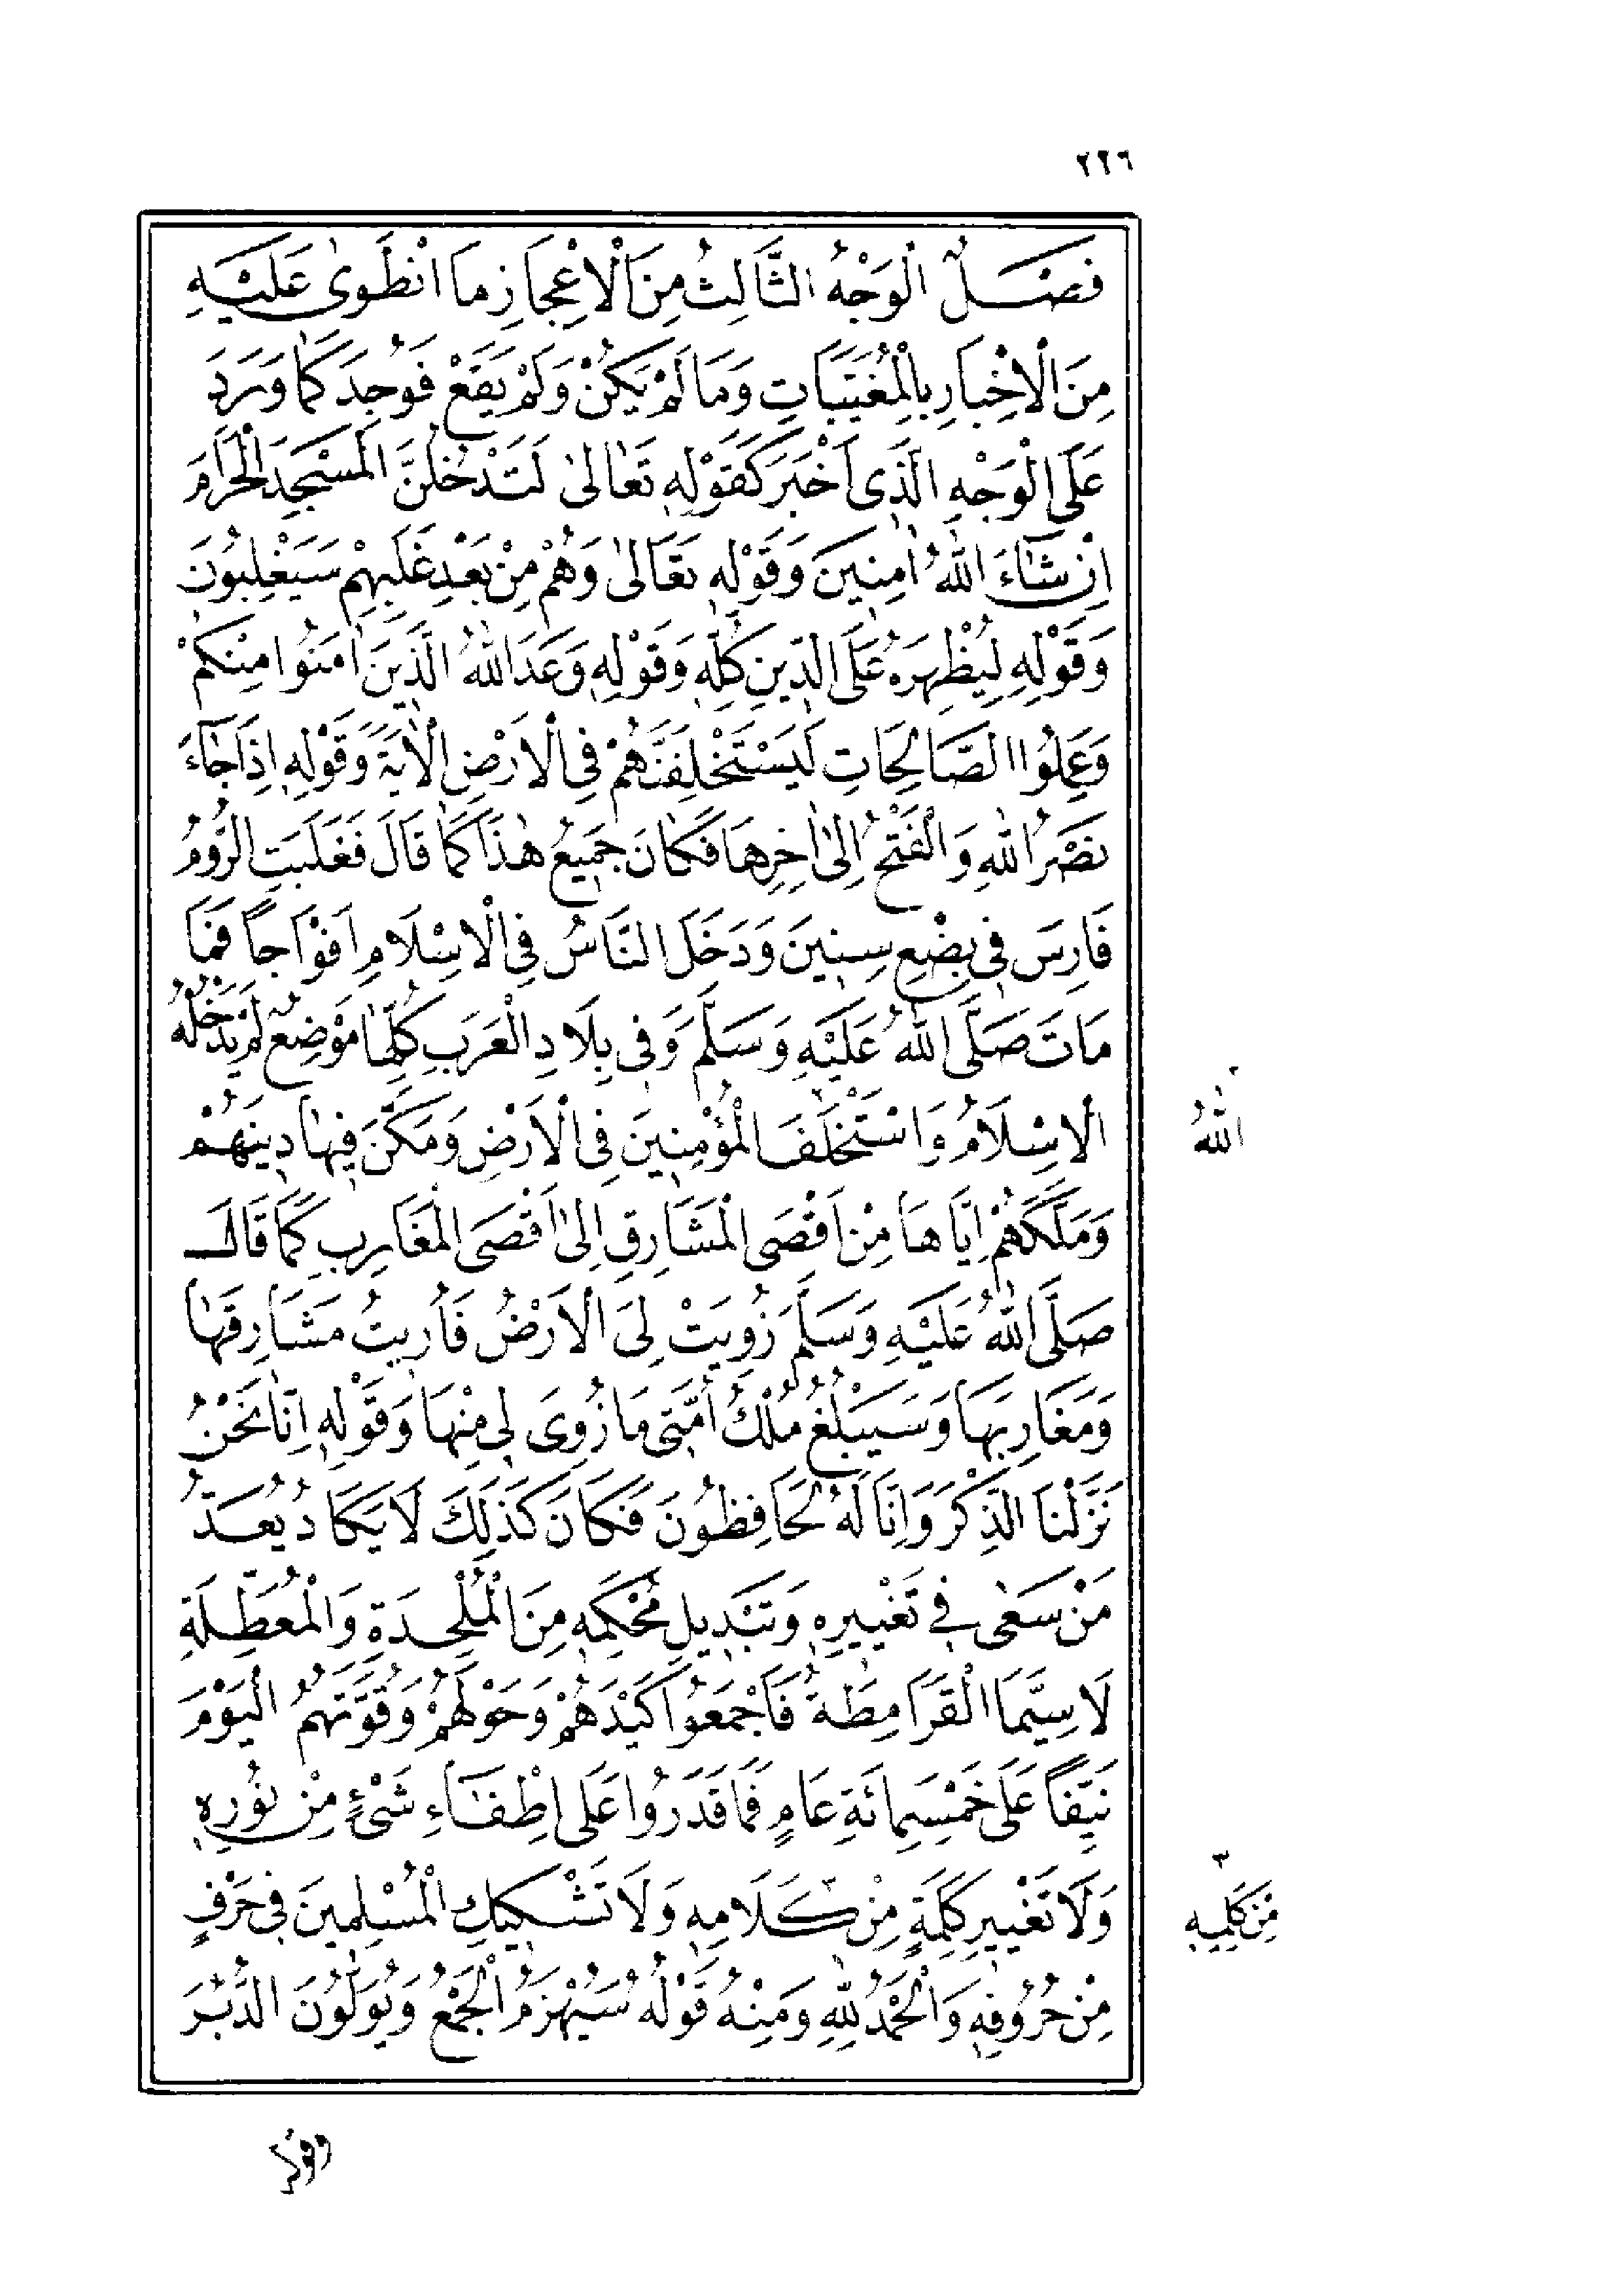 ٢٢٦
فَصْلٌ الْوَجْهُ الثَّالِثُ مِنَ الْاِعْجَازِ مَا انْطَوىٰ عَلَيْهِ
مِنَ الْاِخْبَارِ بِالْمُغَيَّبَاتِ وَمَا لَمْ يَكُنْ وَلَمْ يَقَعْ فَوُجِدَ كَمَا وَرَدَ
عَلَى الْوَجْهِ الَّذِى اَخْبَرَ كَقَوْلِهِ تَعَالىٰ لَتَدْخُلُنَّ الْمَسْجِدَ الْحَرَامَ
اِنْ شَاءَ اللّٰهُ اٰمِنِينَ وَقَوْلِهِ تَعَالىٰ وَهُمْ مِنْ بَعْدِ غَلَبِهِمْ سَيَغْلِبُونَ
وَقَوْلِهِ لِيُظْهِرَهُ عَلَى الدِّينِ كُلِّهِ وَقَوْلِهِ وَعَدَ اللّٰهُ الَّذِينَ اٰمَنُوا مِنْكُمْ
وَعَمِلُوا الصَّالِحَاتِ لَيَسْتَخْلِفَنَّهُمْ فِى الْاَرْضِ الْاٰيَةَ وَقَوْلِهِ اِذَا جَاءَ
نَصْرُ اللّٰهِ وَالْفَتْحُ اِلىٰ اٰخِرِهَا فَكَانَ جَمِيعُ هٰذَا كَمَا قَالَ فَغَلَبَتِ الرُّومُ
فَارِسَ فِى بِضْعِ سِنِينَ وَدَخَلَ النَّاسُ فِى الْاِسْلَامِ اَفْوَاجاً فَمَا
مَاتَ صَلَّى اللّٰهُ عَلَيْهِ وَسَلَّمَ وَفِى بِلَادِ الْعَرَبِ كُلِّهَا مَوْضِعٌ لَمْ يَدْخُلْهُ
الْاِسْلَامُ وَاسْتَخْلَفَ الْمُؤْمِنِينَ فِى الْاَرْضِ وَمَكَّنَ فِيهَا دِينَهُمْ
اللّٰهُ
وَمَلَّكَهُمْ اِيَّاهَا مِنْ اَقْصَى الْمَشَارِقِ اِلىٰ اَقْصَى الْمَغَارِبِ كَمَا قَالَ
صَلَّى اللّٰهُ عَلَيْهِ وَسَلَّمَ زُوِيَتْ لِىَ الْاَرْضُ فَاُرِيتُ مَشَارِقَهَا
وَمَغَارِبَهَا وَسَيَبْلُغُ مُلْكُ اُمَّتِى مَا زُوِىَ لِى مِنْهَا وَقَوْلِهِ اِنَّا نَحْنُ
نَزَّلْنَا الذِّكْرَ وَاِنَّا لَهُ لَحَافِظُونَ فَكَانَ كَذٰلِكَ لَا يَكَادُ يُعَدُّ
مَنْ سَعٰى فِى تَغْيِيرِهِ وَتَبْدِيلِ مُحْكَمِهِ مِنَ الْمُلْحِدَةِ وَالْمُعَطِّلَةِ
لَا سِيَّمَا الْقَرَامِطَةُ فَاَجْمَعُوا كَيْدَهُمْ وَحَوْلَهُمْ وَقُوَّتَهُمُ الْيَوْمَ
نَيِّفاً عَلَى خَمْسِمِائَةِ عَامٍ فَمَا قَدَرُوا عَلَى اِطْفَاءِ شَىْءٍ مِنْ نُورِهِ
وَلَا تَغْيِيرِ كَلِمَةٍ مِنْ كَلَامِهِ وَلَا تَشْكِيكِ الْمُسْلِمِينَ فِى حَرْفٍ
٣
مِنْ كَلِمِهِ
مِنْ حُرُوفِهِ وَالْحَمْدُ لِلّٰهِ وَمِنْهُ قَوْلُهُ سَيُهْزَمُ الْجَمْعُ وَيُوَلُّونَ الدُّبُرَ